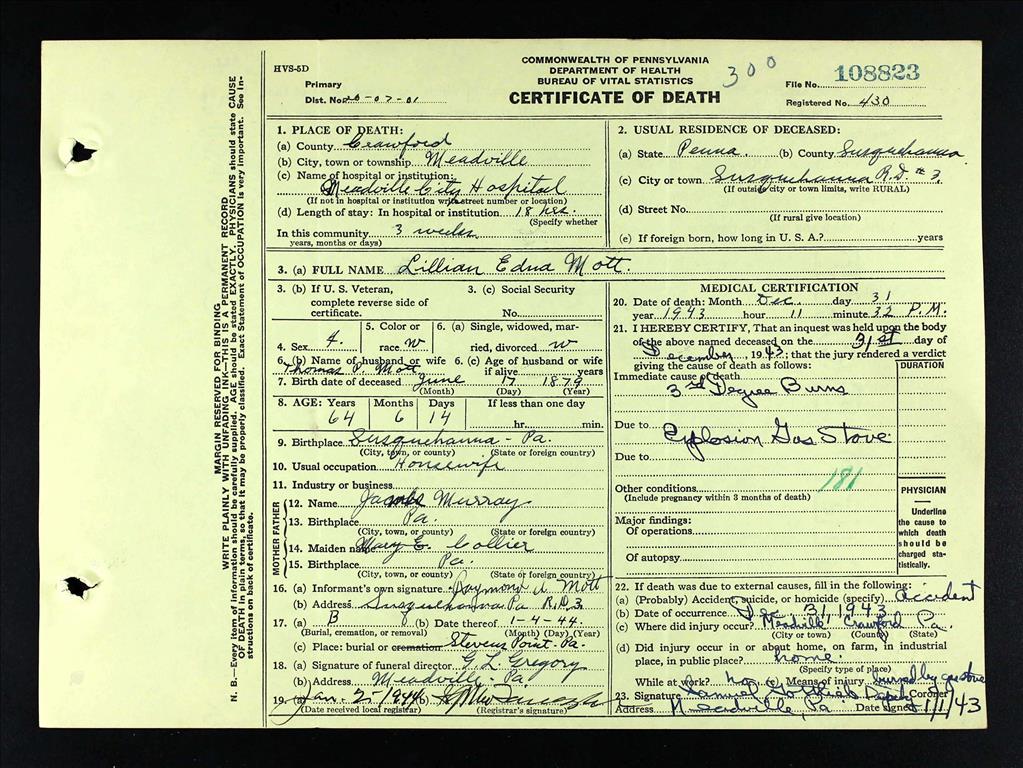 HVS-5D
COMMONWEALTH OF PENNSYLVANIA
DEPARTMENT OF HEALTH
BUREAU OF VITAL STATISTICS
CERTIFICATE OF DEATH
300
Primary
Dist. No. 20-07-01
File No. 108823
Registered No. 430
MARGIN RESERVED FOR BINDING
WRITE PLAINLY WITH UNFADING INK—THIS IS A PERMANENT RECORD
N. B.—Every item of information should be carefully supplied. AGE should be stated EXACTLY. PHYSICIANS should state CAUSE
OF DEATH in plain terms, so that it may be properly classified. Exact Statement of OCCUPATION is very important. See In-
structions on back of certificate.
1. PLACE OF DEATH:
(a) County Crawford
(b) City, town or township Meadville
(c) Name of hospital or institution:
Meadville City Hospital
(If not in hospital or institution write street number or location)
(d) Length of stay: In hospital or institution 18 hrs.
(Specify whether
In this community 3 weeks
years, months or days)
2. USUAL RESIDENCE OF DECEASED:
(a) State Penna. (b) County Susquehanna
(c) City or town Susquehanna R.D. #3.
(If outside city or town limits, write RURAL)
(d) Street No.
(If rural give location)
(e) If foreign born, how long in U. S. A.? years
3. (a) FULL NAME Lillian Edna Mott.
3. (b) If U. S. Veteran,
complete reverse side of
certificate.
3. (c) Social Security
No.
4. Sex 5. Color or
race W
6. (a) Single, widowed, mar-
ried, divorced W
6. (b) Name of husband or wife
Thomas P. Mott
6. (c) Age of husband or wife
if alive years
7. Birth date of deceased June 17 1879
(Month) (Day) (Year)
8. AGE: Years Months Days If less than one day
64 6 14 hr. min.
9. Birthplace Susquehanna - Pa.
(City, town, or county) (State or foreign country)
10. Usual occupation Housewife
11. Industry or business
MOTHER FATHER
12. Name Murray
13. Birthplace Pa.
(City, town, or county) (State or foreign country)
14. Maiden name Mary E. Collier
15. Birthplace Pa.
(City, town, or county) (State or foreign country)
16. (a) Informant's own signature Raymond Mott
(b) Address Susquehanna Pa R.D.3
17. (a) B (b) Date thereof 1-4-44.
(Burial, cremation, or removal) (Month) (Day) (Year)
(c) Place: burial or cremation Stevens Point - Pa.
18. (a) Signature of funeral director G. L. Gregory
(b) Address Meadville - Pa
19. (a) Jan. 2-1944 (b)
(Date received local registrar) (Registrar's signature)
MEDICAL CERTIFICATION
20. Date of death: Month Dec. day 31
year 1943 hour 11 minute 32 P.M.
21. I HEREBY CERTIFY, That an inquest was held upon the body
of the above named deceased on the 31st day of
December, 1943; that the jury rendered a verdict
giving the cause of death as follows:
DURATION
Immediate cause of death
3rd Degree Burns
Due to
Explosion Gas Stove
Due to
181
Other conditions
(Include pregnancy within 3 months of death)
Major findings:
Of operations
Of autopsy
PHYSICIAN
Underline
the cause to
which death
should be
charged sta-
tistically.
22. If death was due to external causes, fill in the following:
(a) (Probably) Accident, suicide, or homicide (specify) Accident
(b) Date of occurrence Dec 31 1943
(c) Where did injury occur? Meadville Crawford Pa.
(City or town) (County) (State)
(d) Did injury occur in or about home, on farm, in industrial
place, in public place? home.
(Specify type of place)
While at work? no (e) Means of injury burned by gas stove
23. Signature Samuel Gottlieb Deputy Coroner
Address Meadville, Pa Date signed 1/1/43